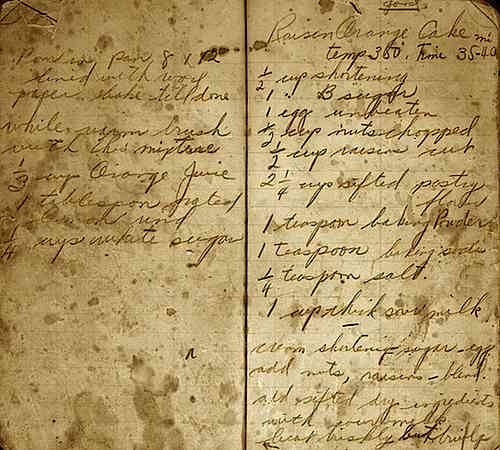 Pour in pan 8 x 12
lined with wax
paper. bake till done
while warm brush
with this mixture
1/3 cup Orange Juice
1 tablespoon grated
rind
1/4 cups white sugar
good
Raisin Orange Cake
temp 350. Time 35-40
1/2 cup shortening
1 " B sugar
1 egg unbeaten
1/2 cup nuts chopped
1/2 cup raisins cut
2 1/4 cups sifted pastry
flour
1 teaspoon baking Powder
1 teaspoon baking soda
1/4 teaspoon salt.
1 cup thick sour milk
cream shortening-sugar-egg
add nuts, raisins - blend.
add sifted dry ingredients
with sour milk
beat briskly but briefly